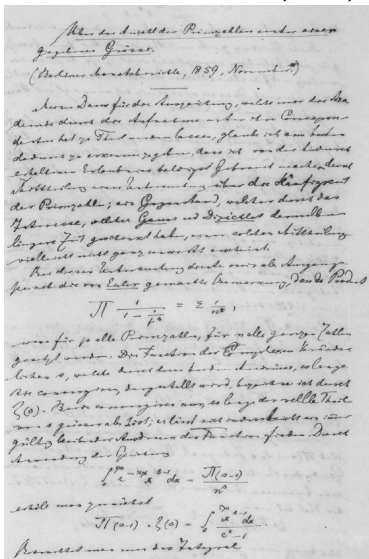 Ueber die Anzahl der Primzahlen unter einer
gegebenen Grösse.
(Berliner Monatsberichte, 1859, November)
Meinen Dank für die Auszeichnung, welche mir die Aka-
demie durch die Aufnahme unter ihre Correspon-
denten hat zu Theil werden lassen, glaube ich am besten
dadurch zu erkennen zu geben, dass ich von der hierdurch
erhaltenen Erlaubniss baldigst Gebrauch mache durch
Mittheilung einer Untersuchung über die Häufigkeit
der Primzahlen; ein Gegenstand, welcher durch das
Interesse, welches Gauss und Dirichlet demselben
längere Zeit geschenkt haben, einer solchen Mittheilung
vielleicht nicht ganz unwerth erscheint.
Bei dieser Untersuchung diente mir als Ausgangs-
punkt die von Euler gemachte Bemerkung, dass das Product
∏ 1/(1 − 1/p^s) = Σ 1/n^s,
wenn für p alle Primzahlen, für n alle ganzen Zahlen
gesetzt werden. Die Function der complexen Veränder-
lichen s, welche durch diese beiden Ausdrücke, so lange
sie convergiren, dargestellt wird, bezeichne ich durch
ζ(s). Beide convergiren nur, so lange der reelle Theil
von s grösser als 1 ist; es lässt sich indess leicht ein immer
gültig bleibender Ausdruck der Function finden. Durch
Anwendung der Gleichung
∫₀^∞ e^(−nx) x^(s−1) dx = Π(s−1)/n^s
erhält man zunächst
Π(s−1) · ζ(s) = ∫₀^∞ x^(s−1) dx/(e^x − 1)
Betrachtet man nun das Integral